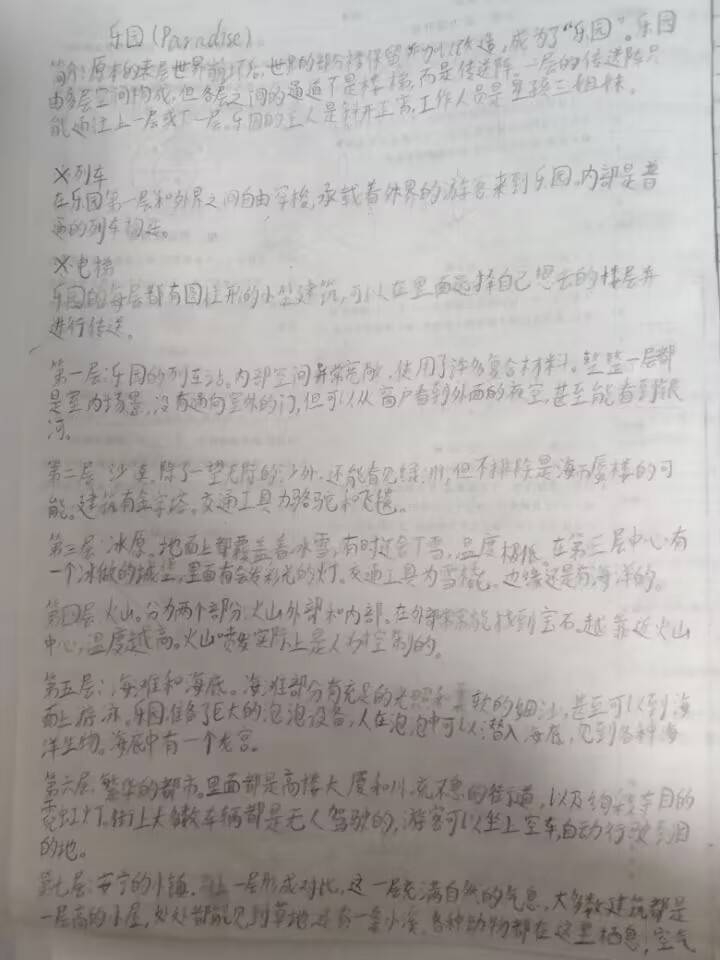 乐园(Paradise)
简介:原本的末层世界崩坏后,世界的部分被保留并加以改造,成为了“乐园”。乐园
由多层空间构成,但各层之间的通道不是楼梯,而是传送阵。一层的传送阵只
能通往上一层或下一层。乐园的主人是,工作人员是三姐妹。
×列车
在乐园第一层和外界之间自由穿梭,承载着外界的游客来到乐园。内部是普
通的列车构造。
×电梯
乐园的每层都有圆柱形的小型建筑,可以在里面选择自己想去的楼层并
进行传送。
第一层:乐园的列车站。内部空间异常宽敞,使用了许多复合材料。整整一层都
是室内场景,没有通向室外的门,但可以从窗户看到外面的夜空,甚至能看到银
河。
第二层:沙漠。除了一望无际的沙外,还能看见绿洲,但不排除是海市蜃楼的可
能。建筑有金字塔。交通工具为骆驼和飞毯。
第三层:冰原。地面上都覆盖着冰雪,有时还会下雪,温度极低。在第三层中心有
一个冰做的城堡,里面有会发彩光的灯。交通工具为雪橇。边缘还是有海洋的。
第四层:火山。分为两个部分:火山外部和内部。在外部常常能找到宝石。越靠近火山
中心,温度越高。火山喷发实际上是人为控制的。
第五层:海滩和海底。海滩部分有充足的光照和柔软的细沙,甚至可以到海
面上游泳。乐园准备了巨大的泡泡设备,人在泡泡中可以潜入海底,见到各种海
洋生物。海底中有一个龙宫。
第六层:繁华的都市。里面都是高楼大厦和川流不息的街道,以及绚丽夺目的
霓虹灯。街上大多数车辆都是无人驾驶的,游客可以坐上空车,自动行驶到目
的地。
第七层:安宁的小镇。与上一层形成对比,这一层充满自然的气息。大多数建筑都是
一层高的小屋,处处都能见到草地,还有一条小溪。各种动物都在这里栖息,空气